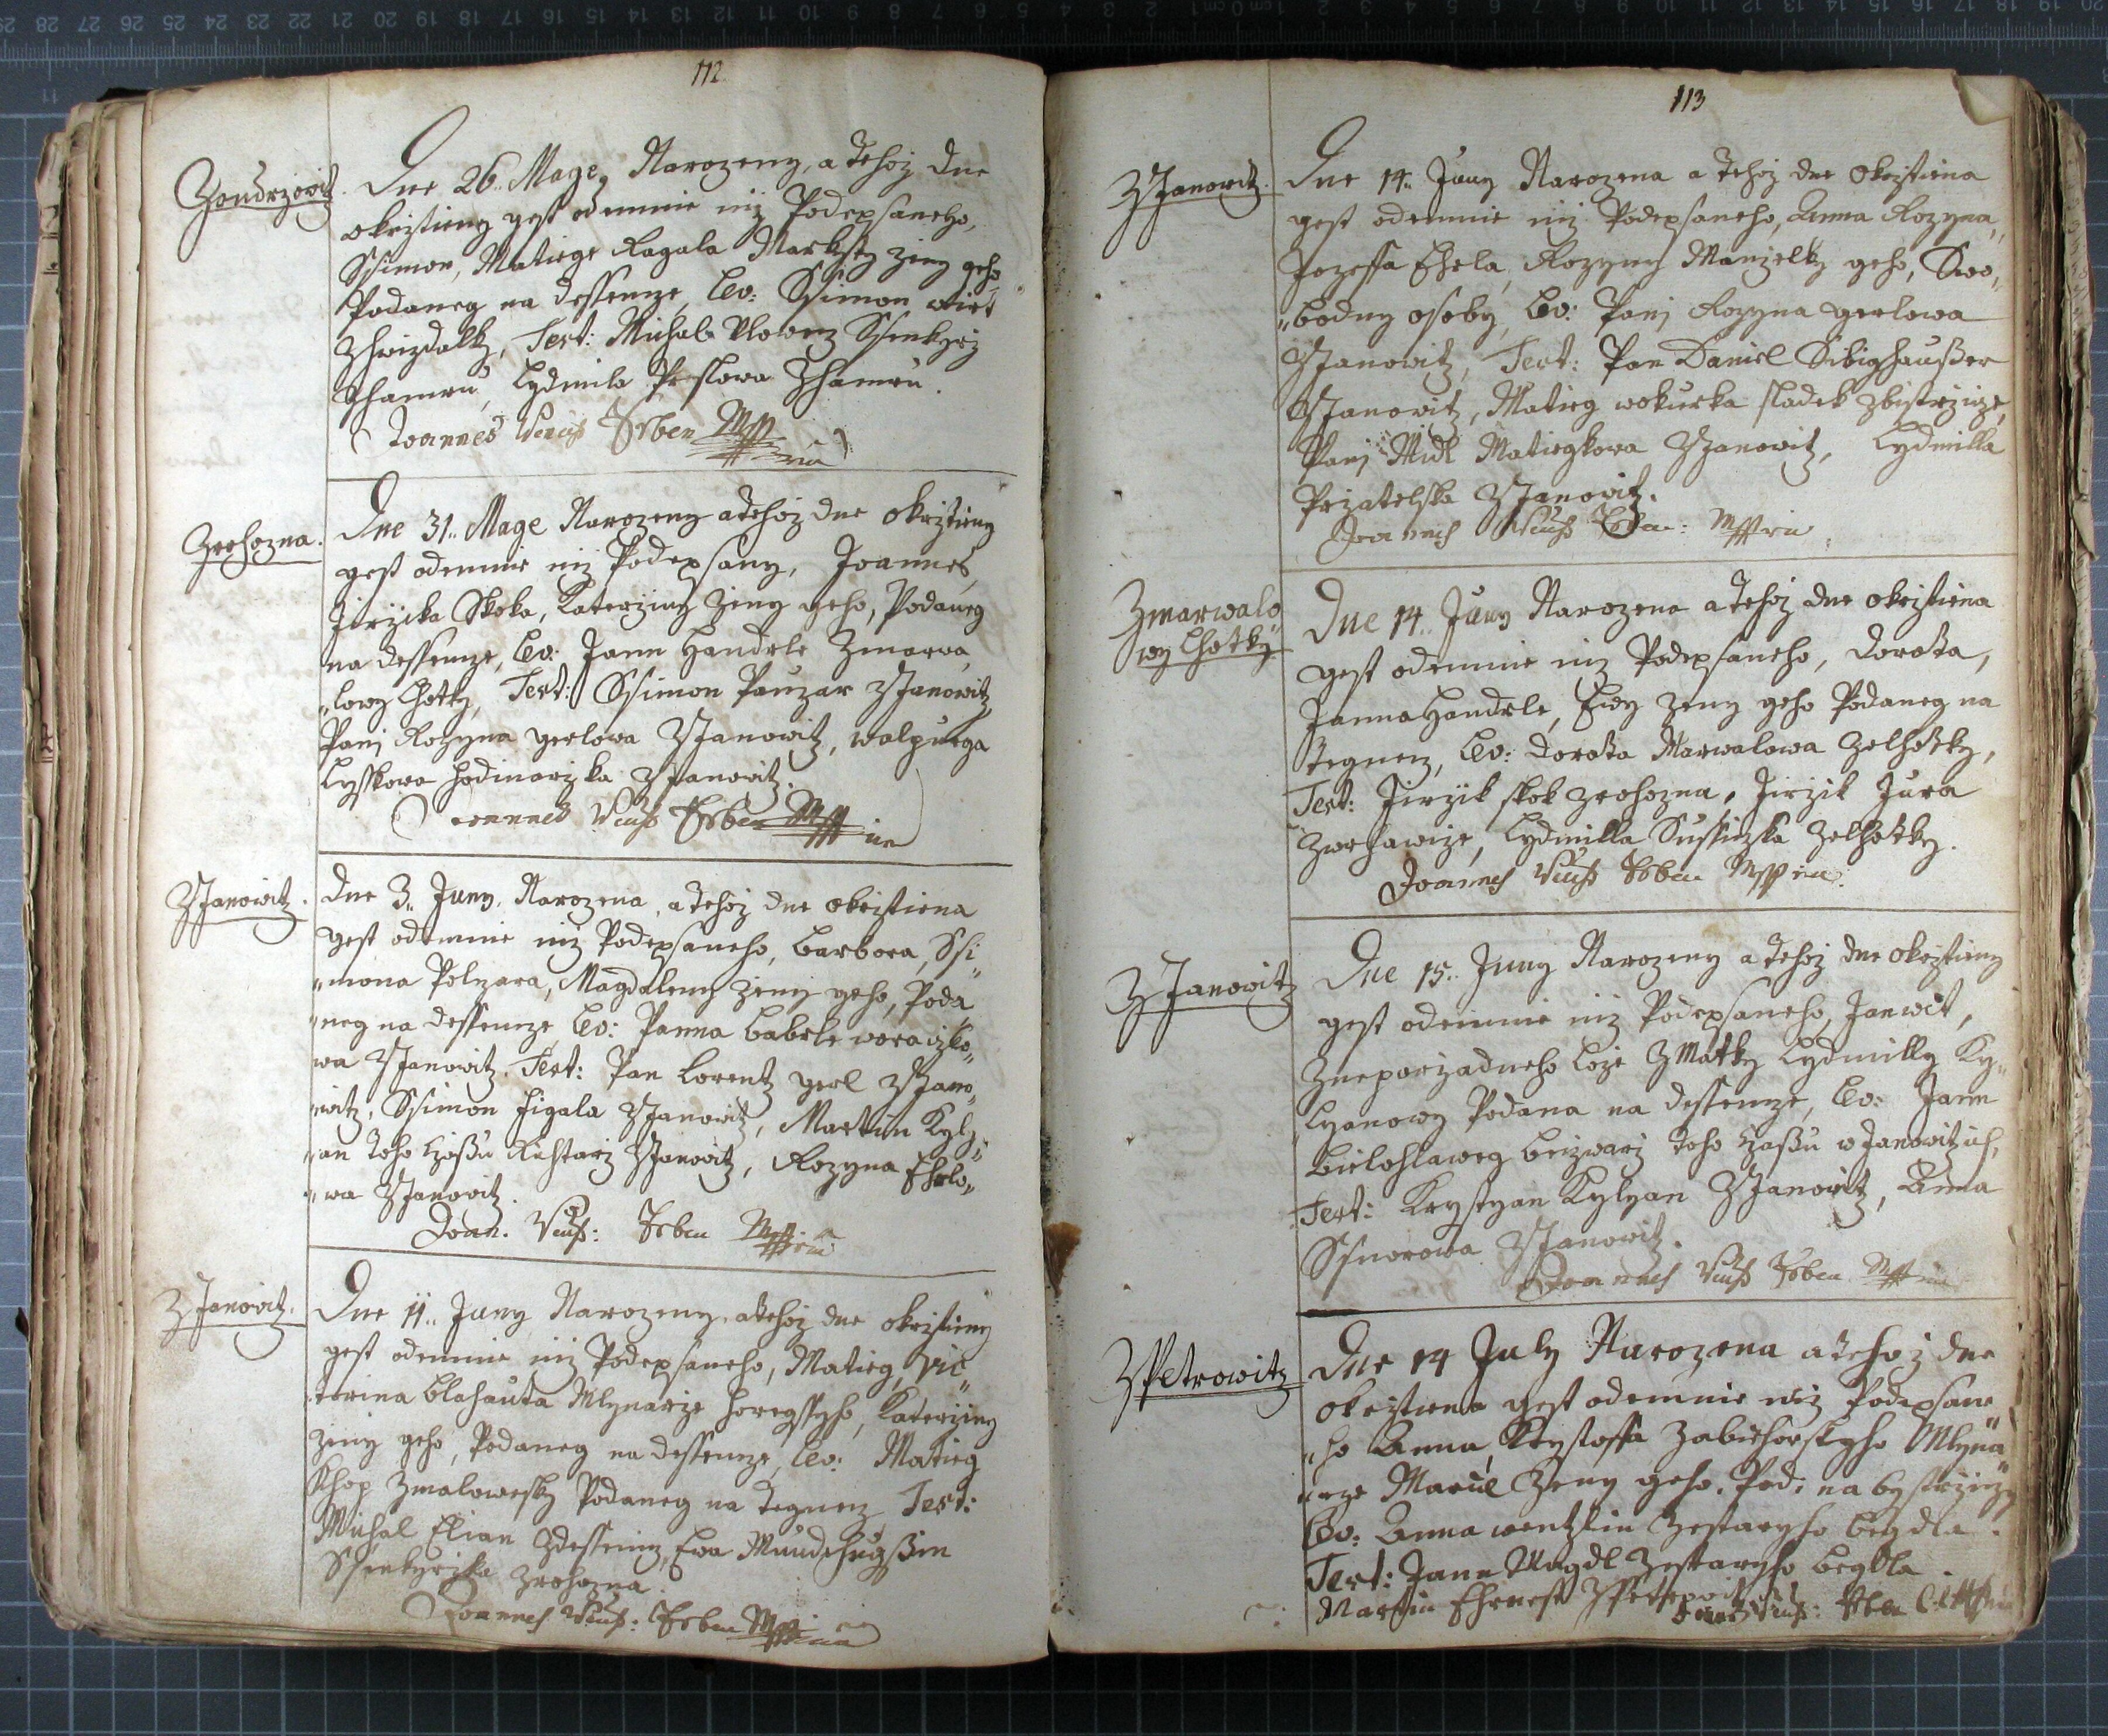 112
Zondrzowitz.
Dne 26. Mage, Narozeny, a tehoz dne
okrztieny gest odemnie niz Podepsaneho,
Ssimon, Matiege Ragala Markyty zeny geho
Podaneg na dessenize, Lev: Ssimon wirt
Zhwizdalky, Test: Michal Ssenkyrz
Zhamru, Lydmila Zhamru.
Joannes Erben Mpp ria
Zrohozna.
Dne 31. Mage Narozeny a tehoz dne okrztieny
gest odemnie niz Podepsany, Joannes,
Jirzicka Skoka, Katerziny Zeny geho, Podaneg
na dessenize, Lev: Jann Handrle Zmarwa
"lowy Lhotky, Test: Ssimon Pauzar ZJanowitz
Pani Rozyna gerlowa ZJanowitz, walpurga
Lysskowa hodinarzka ZJanowitz.
Joannes Erben Mpp ria
ZJanowitz.
Dne 3. Juny, Narozena, a tehoz dne okrztiena
gest odemnie niz Podepsaneho, Barbora, Ssi
"mona Polyzara, Magdaleny zeny geho, Poda
"neg na dessenize, Lev: Panna babele
wa ZJanowitz, Test: Pan Lorentz gerl ZJano
"witz, Ssimon figala ZJanowitz, Martin Kyly
"an toho cziassu Richtarz ZJanowitz, Rozyna Ehelo"
"wa ZJanowitz.
Joan. Erben Mpp ria
ZJanowitz.
Dne 11. Juny Narozeny, a tehoz dne okrztieny
gest odemnie niz Podepsaneho, Matieg, Vic
"torina blahauta Mlynarze horegssyho, Katerziny
zeny geho, Podaneg na dessenize, Lev: Matieg
Khop Zmaloweska Podaneg na tegnez Test:
Michal Elian Zdessenitz, Ewa
Ssenkyrzka Zrohozna.
Joannes Erben Mpp ria
113
ZJanowitz.
Dne 14. Juny Narozena a tehoz dne okrztiena
gest odemnie niz Podepsaneho, Anna Rozyna,
Jozeffa Ehela, Rozyny Manzelky geho, Swo"
"bodny osoby, Lev: Pani Rozyna gerlowa
ZJanowitz, Test: Pan Daniel Sibighausser
ZJanowitz, Matieg wokurka sladek Zbistrzize,
Pani Midl Matiegkowa ZJanowitz, Lydmilla
Przatelska ZJanowitz.
Joannes Erben: Mpp ria
Zmarwalo
wy Lhotky.
Dne 14. Juny Narozena a tehoz dne okrztiena
gest odemnie niz Podepsaneho, Dorota,
Janna Handrle, Ewy zeny geho Podaneg na
tegnez, Lev: Dorota Marwalowa Zelhotky,
Test: Jirzik skok Zrohozna, Jirzik Jura
Zwrhawize, Lydmilla Sussiczka Zelhotky.
Joannes Erben Mpp ria.
ZJanowitz
Dne 15. Juny Narozeny a tehoz dne okrztieny
gest odemnie niz Podepsaneho, Janwit,
Zneporzadneho Loze Zmatky Lydmilly Ky"
Lyanowy Podana na dessenize, Lev: Jann
bielohlaweg toho czassu w Janowitzich,
Test: Krystyan Kylyan ZJanowitz, Anna
Ssnorowa ZJanowitz.
Joannes Erben Mpp ria
ZPetrowitz
Dne 14 July Narozena a tehoz dne
okrztiena gest odemnie niz Podepsane
"ho Anna, Krystoffa Zabiehorskyho Mlyna"
"rze Marie Zeny geho, Pod: na bystrzizy
Lev: Anna wentzlin Zestaryho beydla.
Test: Jann Magdl Zestaryho beydla.
Martin Ehrnest ZPetrowitz Erben Mpp ria